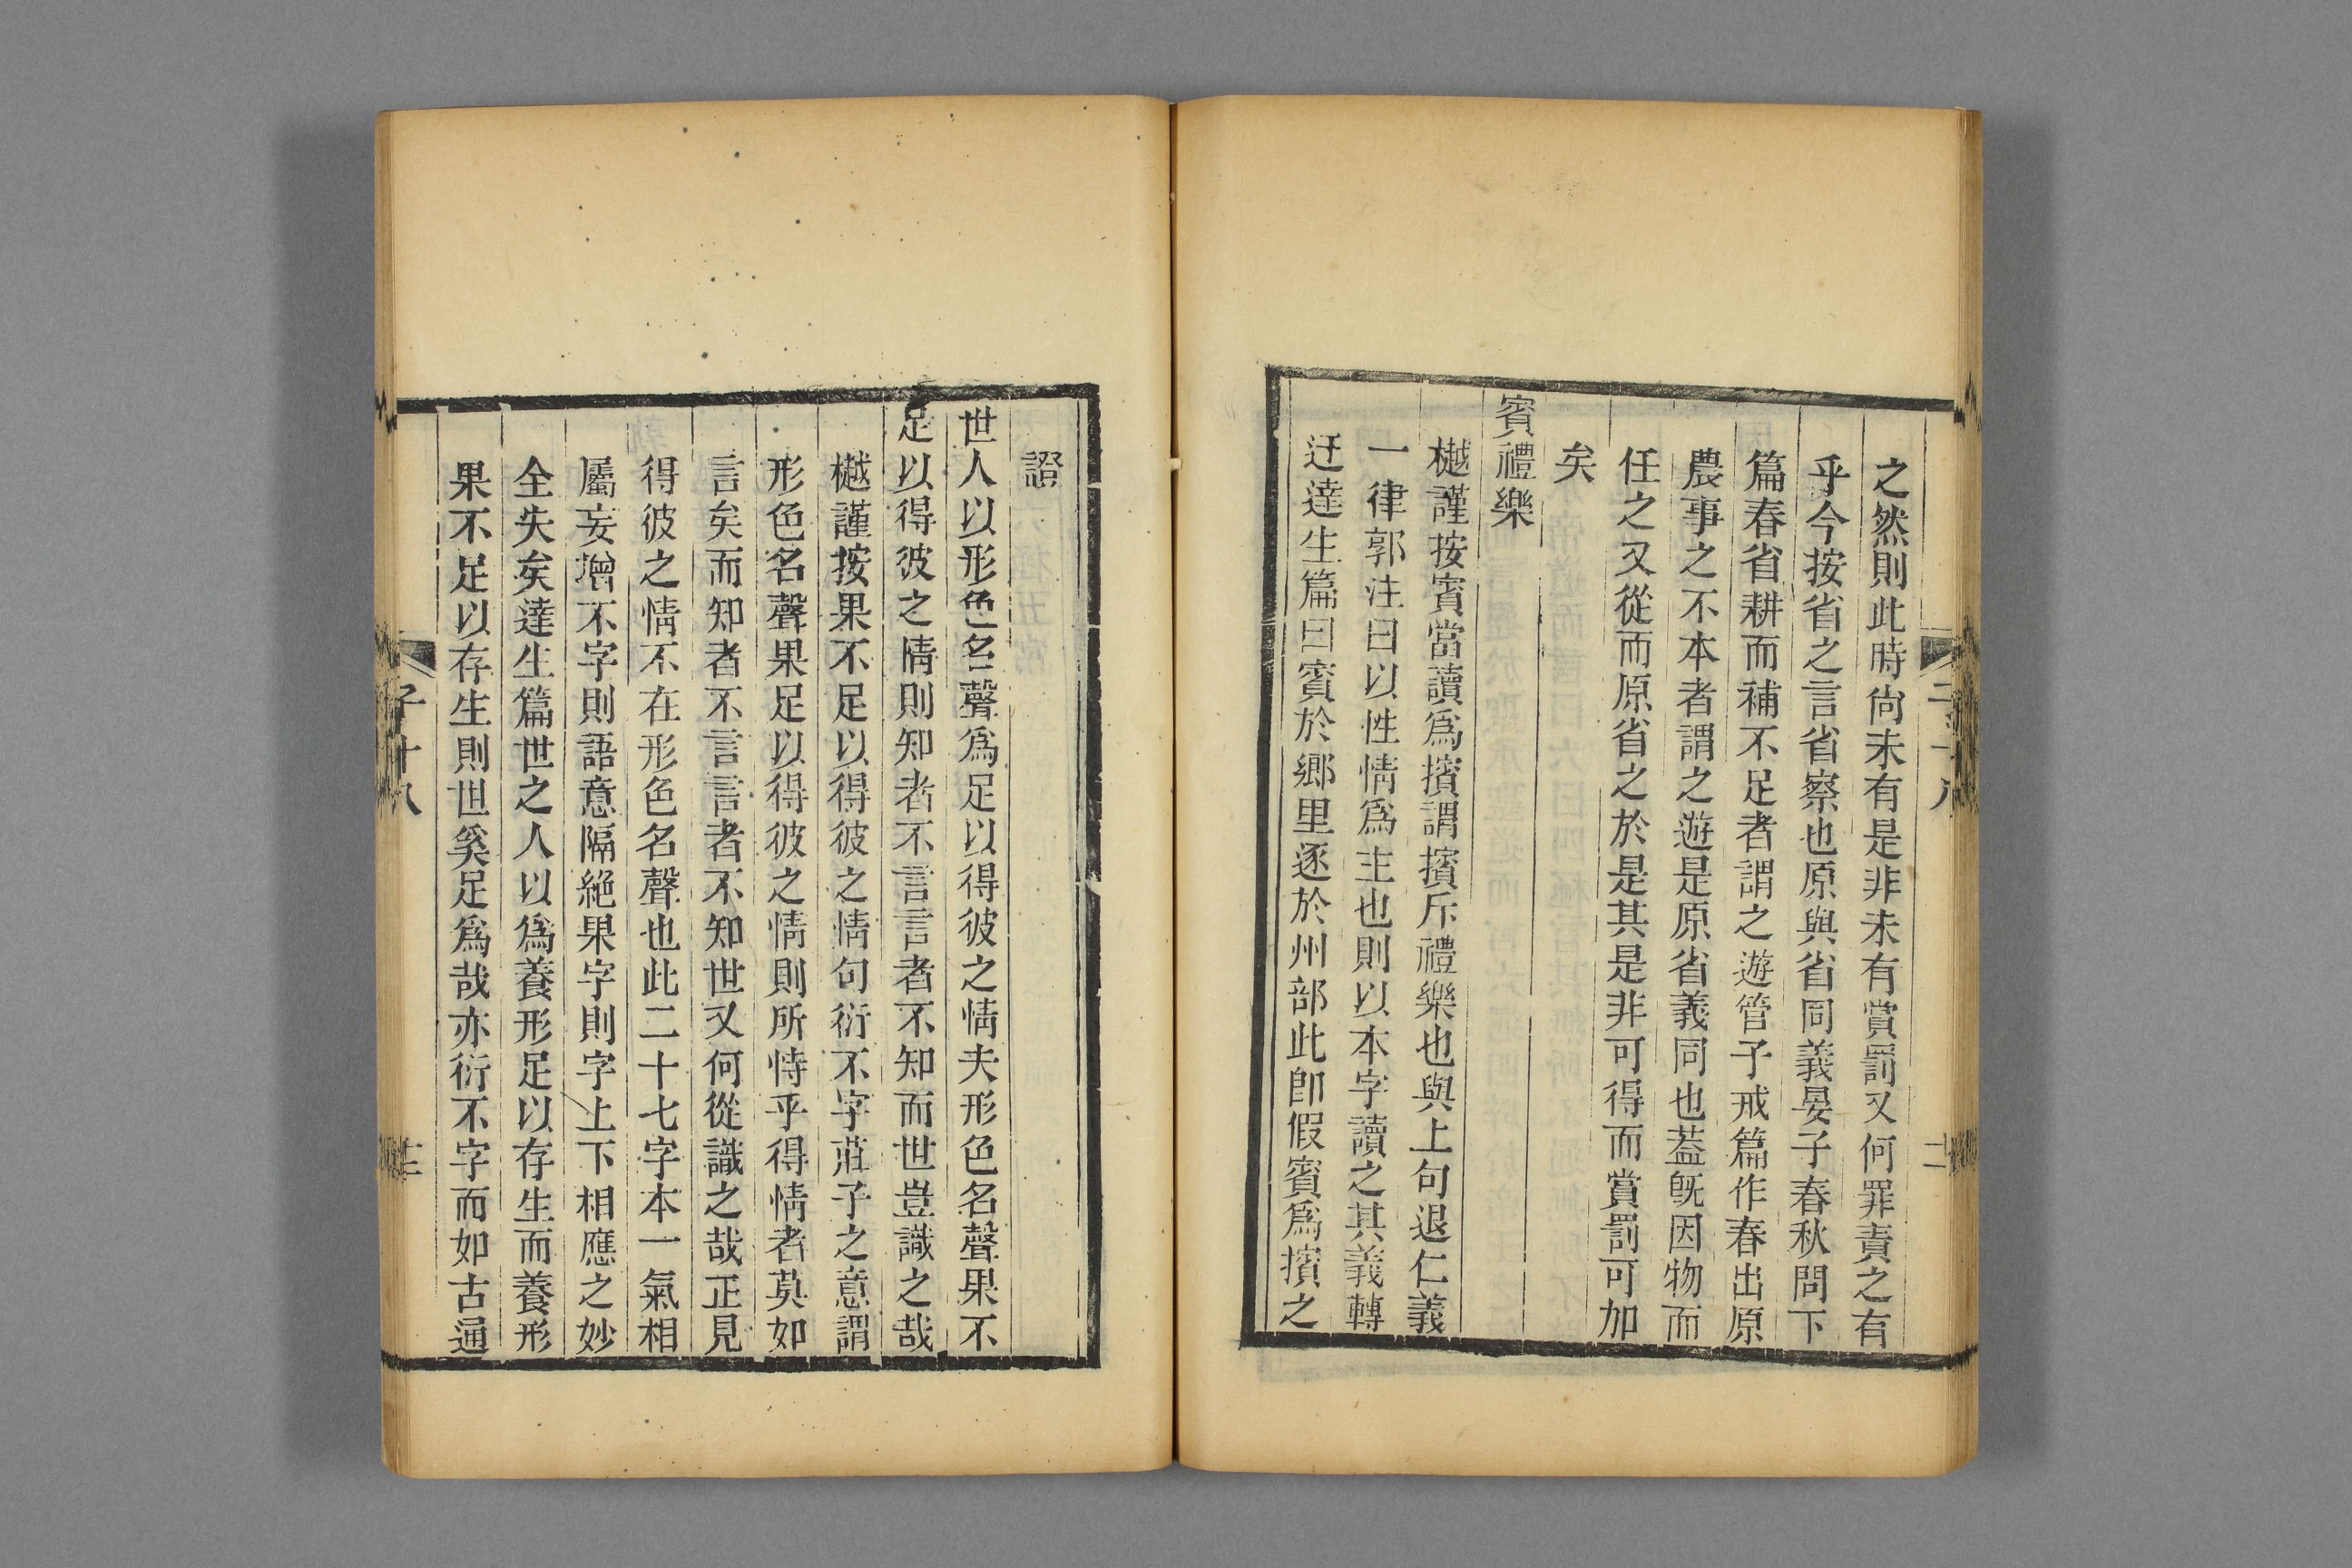 之然則此時尙未有是非未有賞罰又何罪責之有
乎今按省之言省察也原與省同義晏子春秋問下
篇春省耕而補不足者謂之遊管子戒篇作春出原
農事之不本者謂之遊是原省義同也葢旣因物而
任之又從而原省之於是其是非可得而賞罰可加
矣
賓禮樂
樾謹按賓當讀爲擯謂擯斥禮樂也與上句退仁義
一律郭注曰以性情爲主也則以本字讀之其義轉
迂達生篇曰賓於鄉里逐於州部此卽假賓爲擯之
證
世人以形色名聲爲足以得彼之情夫形色名聲果不
足以得彼之情則知者不言言者不知而世豈識之哉
樾謹按果不足以得彼之情句衍不字莊子之意謂
形色名聲果足以得彼之情則所恃乎得情者莫如
言矣而知者不言言者不知世又何從識之哉正見
得彼之情不在形色名聲也此二十七字本一氣相
屬妄增不字則語意隔絶果字則字上下相應之妙
全失矣達生篇世之人以爲養形足以存生而養形
果不足以存生則世奚足爲哉亦衍不字而如古通
子十八